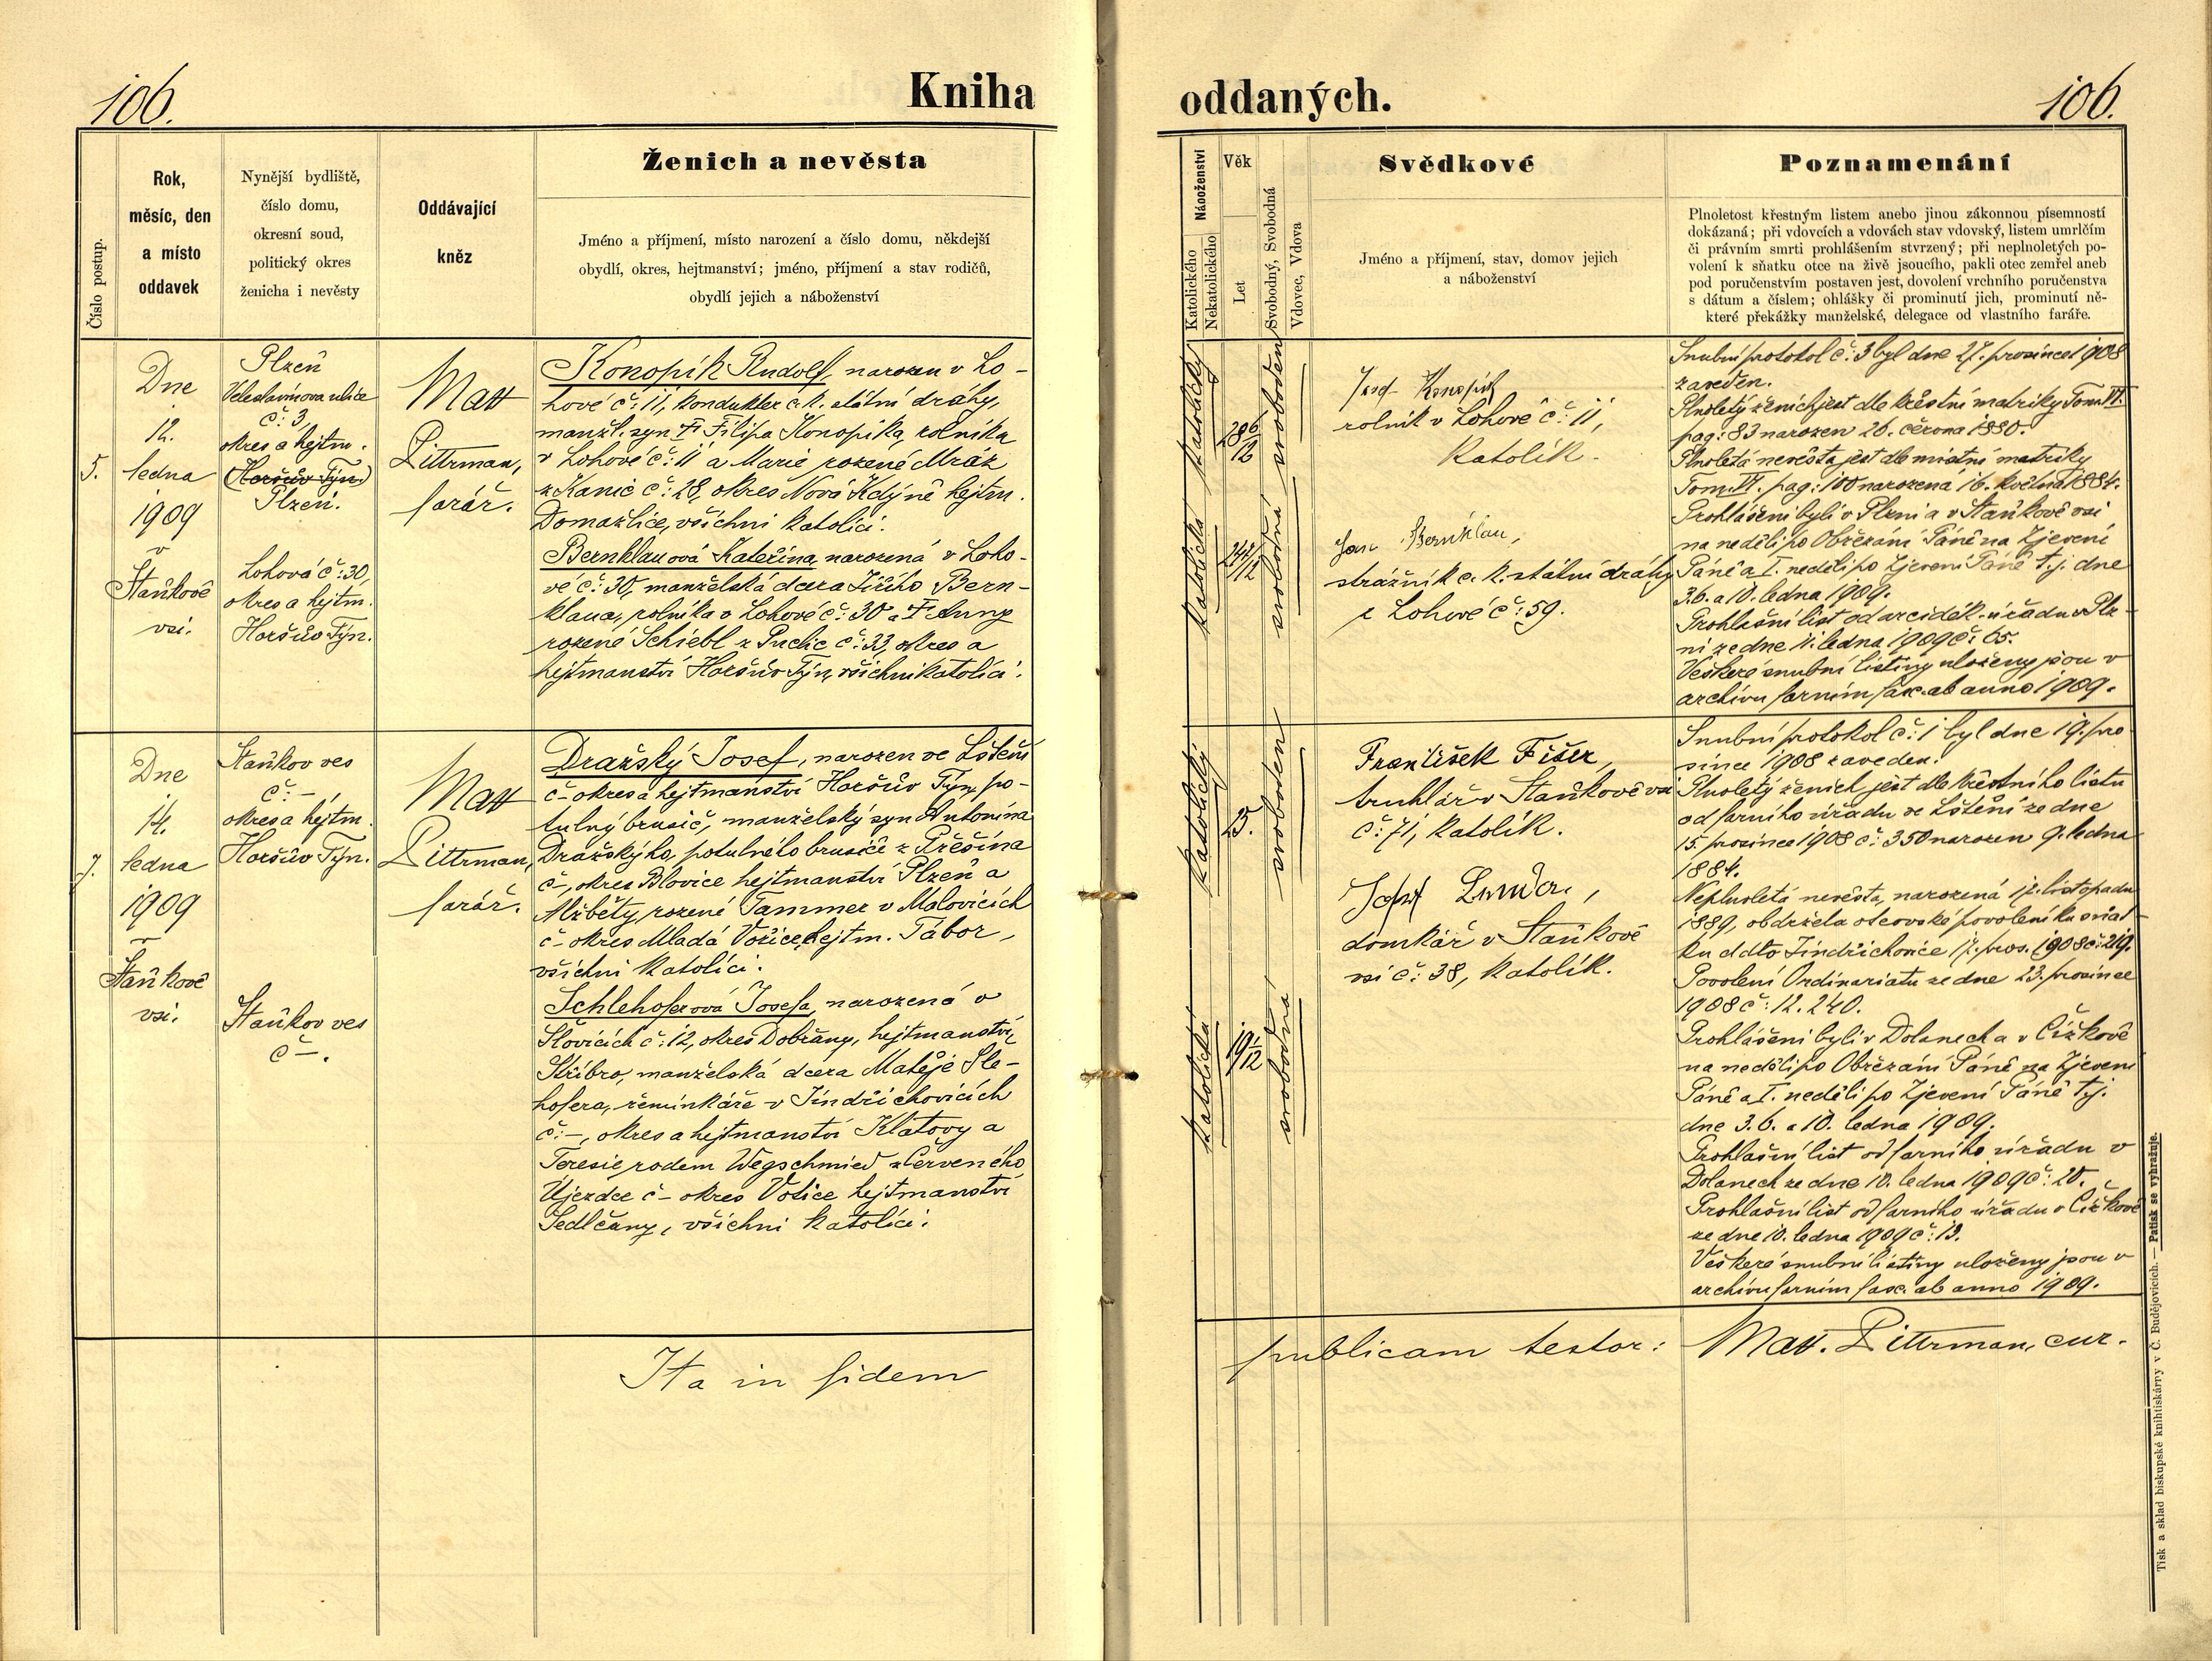 106.
Kniha
Číslo postup.
Rok,
měsíc, den
a místo
oddavek
Nynější bydliště,
číslo domu,
okresní soud,
politický okres
ženicha i nevěsty
Oddávající
kněz
Ženich a nevěsta
Jméno a příjmení, místo narození a číslo domu, někdejší
obydlí, okres, hejtmanství; jméno, příjmení a stav rodičů,
obydlí jejich a náboženství
5.
Dne
12.
ledna
1909
v
Staňkově
vsi.
Plzeň
Veleslavínova ulice
č: 3,
okres a hejtm.
(Horšův Týn)
Plzeň.
Lohová č: 30,
okres a hejtm.
Horšův Týn.
Matt
Pittrman,
farář.
Konopík Rudolf, narozen v Lo-
hové č: 11, kondukter c. k. státní dráhy,
manžl. syn † Filipa Konopíka, rolníka
v Lohové č: 11 a Marie rozené Mráz
z Kanic č: 28, okres Nová Kdýně hejtm.
Domažlice, všichni katolíci.
Bernklauová Kateřina, narozená v Loho-
vé č: 30, manželská dcera Jiřího Bern-
klaua, rolníka v Lohové č: 30 a † Anny
rozené Schiebl z Puclic č: 33, okres a
hejtmanství Horšův Týn, všichni katolíci.
7.
Dne
14.
ledna
1909
v
Staňkově
vsi.
Staňkov ves
č: –,
okres a hejtm.
Horšův Týn.
Staňkov ves
č –.
Matt
Pittrman,
farář.
Dražský Josef, narozen ve Lštění
č – okres a hejtmanství Horšův Týn, po-
tulný brusič, manželský syn Antonína
Dražského, potulného brusiče z Přešína
č –, okres Blovice hejtmanství Plzeň a
Alžběty, rozené Tammer v Malovicích
č – okres Mladá Vožice, hejtm. Tábor,
všichni katolíci.
Schlehoferová Josefa, narozená v
Šlovicích č: 12, okres Dobřany, hejtmanství
Stříbro, manželská dcera Matěje Šle-
hofera, řemínkáře v Jindřichovicích
č: –, okres a hejtmanství Klatovy a
Teresie, rodem Wegschmied z Červeného
Újezdce č – okres Votice hejtmanství
Sedlčany, všichni katolíci.
Ita in fidem
oddaných.
106.
Náboženství
Katolického
Nekatolického
Věk
Let
Svobodný, Svobodná
Vdovec, Vdova
Svědkové
Jméno a příjmení, stav, domov jejich
a náboženství
Poznamenání
Plnoletost křestným listem anebo jinou zákonnou písemností
dokázaná; při vdovcích a vdovách stav vdovský, listem umrlčím
či právním smrti prohlášením stvrzený; při neplnoletých po-
volení k sňatku otce na živě jsoucího, pakli otec zemřel aneb
pod poručenstvím postaven jest, dovolení vrchního poručenstva
s dátum a číslem; ohlášky či prominutí jich, prominutí ně-
které překážky manželské, delegace od vlastního faráře.
katolický
28 6/12
svoboden
katolická
24 7/12
svobodná
Josef Konopík
rolník v Lohové č: 11,
katolík.
Jan Bernklau,
strážník c. k. státní dráhy
z Lohové č: 59.
Snubní protokol č: 3 byl dne 27. prosince 1908
zaveden.
Plnoletý ženich jest dle křestní matriky Tom. VI.
pag: 83 narozen 26. června 1880.
Plnoletá nevěsta jest dle místní matriky
Tom. VI. pag: 100 narozena 16. května 1884.
Prohlášeni byli v Plzni a v Staňkově vsi
na neděli po Obřezání Páně na Zjevení
Páně a I. neděli po Zjevení Páně t.j. dne
3. 6. a 10. ledna 1909.
Prohlašní list od arciděk. úřadu v Plz-
ni ze dne 11. ledna 1909 č: 65.
Veškeré snubní listiny uloženy jsou v
archivu farním fasc. ab anno 1909.
katolický
25.
svoboden
katolická
19 1/12
svobodná
František Fišer,
truhlář v Staňkově vsi
č: 71, katolík.
Josef
domkář v Staňkově
vsi č: 38, katolík.
Snubní protokol č: 1 byl dne 19. pro-
since 1908 zaveden.
Plnoletý ženich jest dle křestního listu
od farního úřadu ve Lštění ze dne
15. prosince 1908 č: 350 narozen 9. ledna
1884.
Neplnoletá nevěsta, narozená 17. listopadu
1889, obdržela otcovské povolení ku sňat-
ku ddto Jindřichovice 17. pros. 1908 č: 219.
Povolení Ordinariatu ze dne 23. prosince
1908 č: 12.240.
Prohlášeni byli v Dolanech a v Čížkově
na neděli po Obřezání Páně na Zjevení
Páně a I. neděli po Zjevení Páně t.j.
dne 3. 6. a 10. ledna 1909.
Prohlašní list od farního úřadu v
Dolanech ze dne 10. ledna 1909 č: 20.
Prohlašní list od farního úřadu v Čížkově
ze dne 10. ledna 1909 č: 13.
Veškeré snubní listiny uloženy jsou v
archivu farním fasc. ab anno 1909.
publicam testor:
Matt. Pittrman, cur.
Tisk a sklad biskupské knihtiskárny v Č. Budějovicích. — Patisk se vyhražuje.